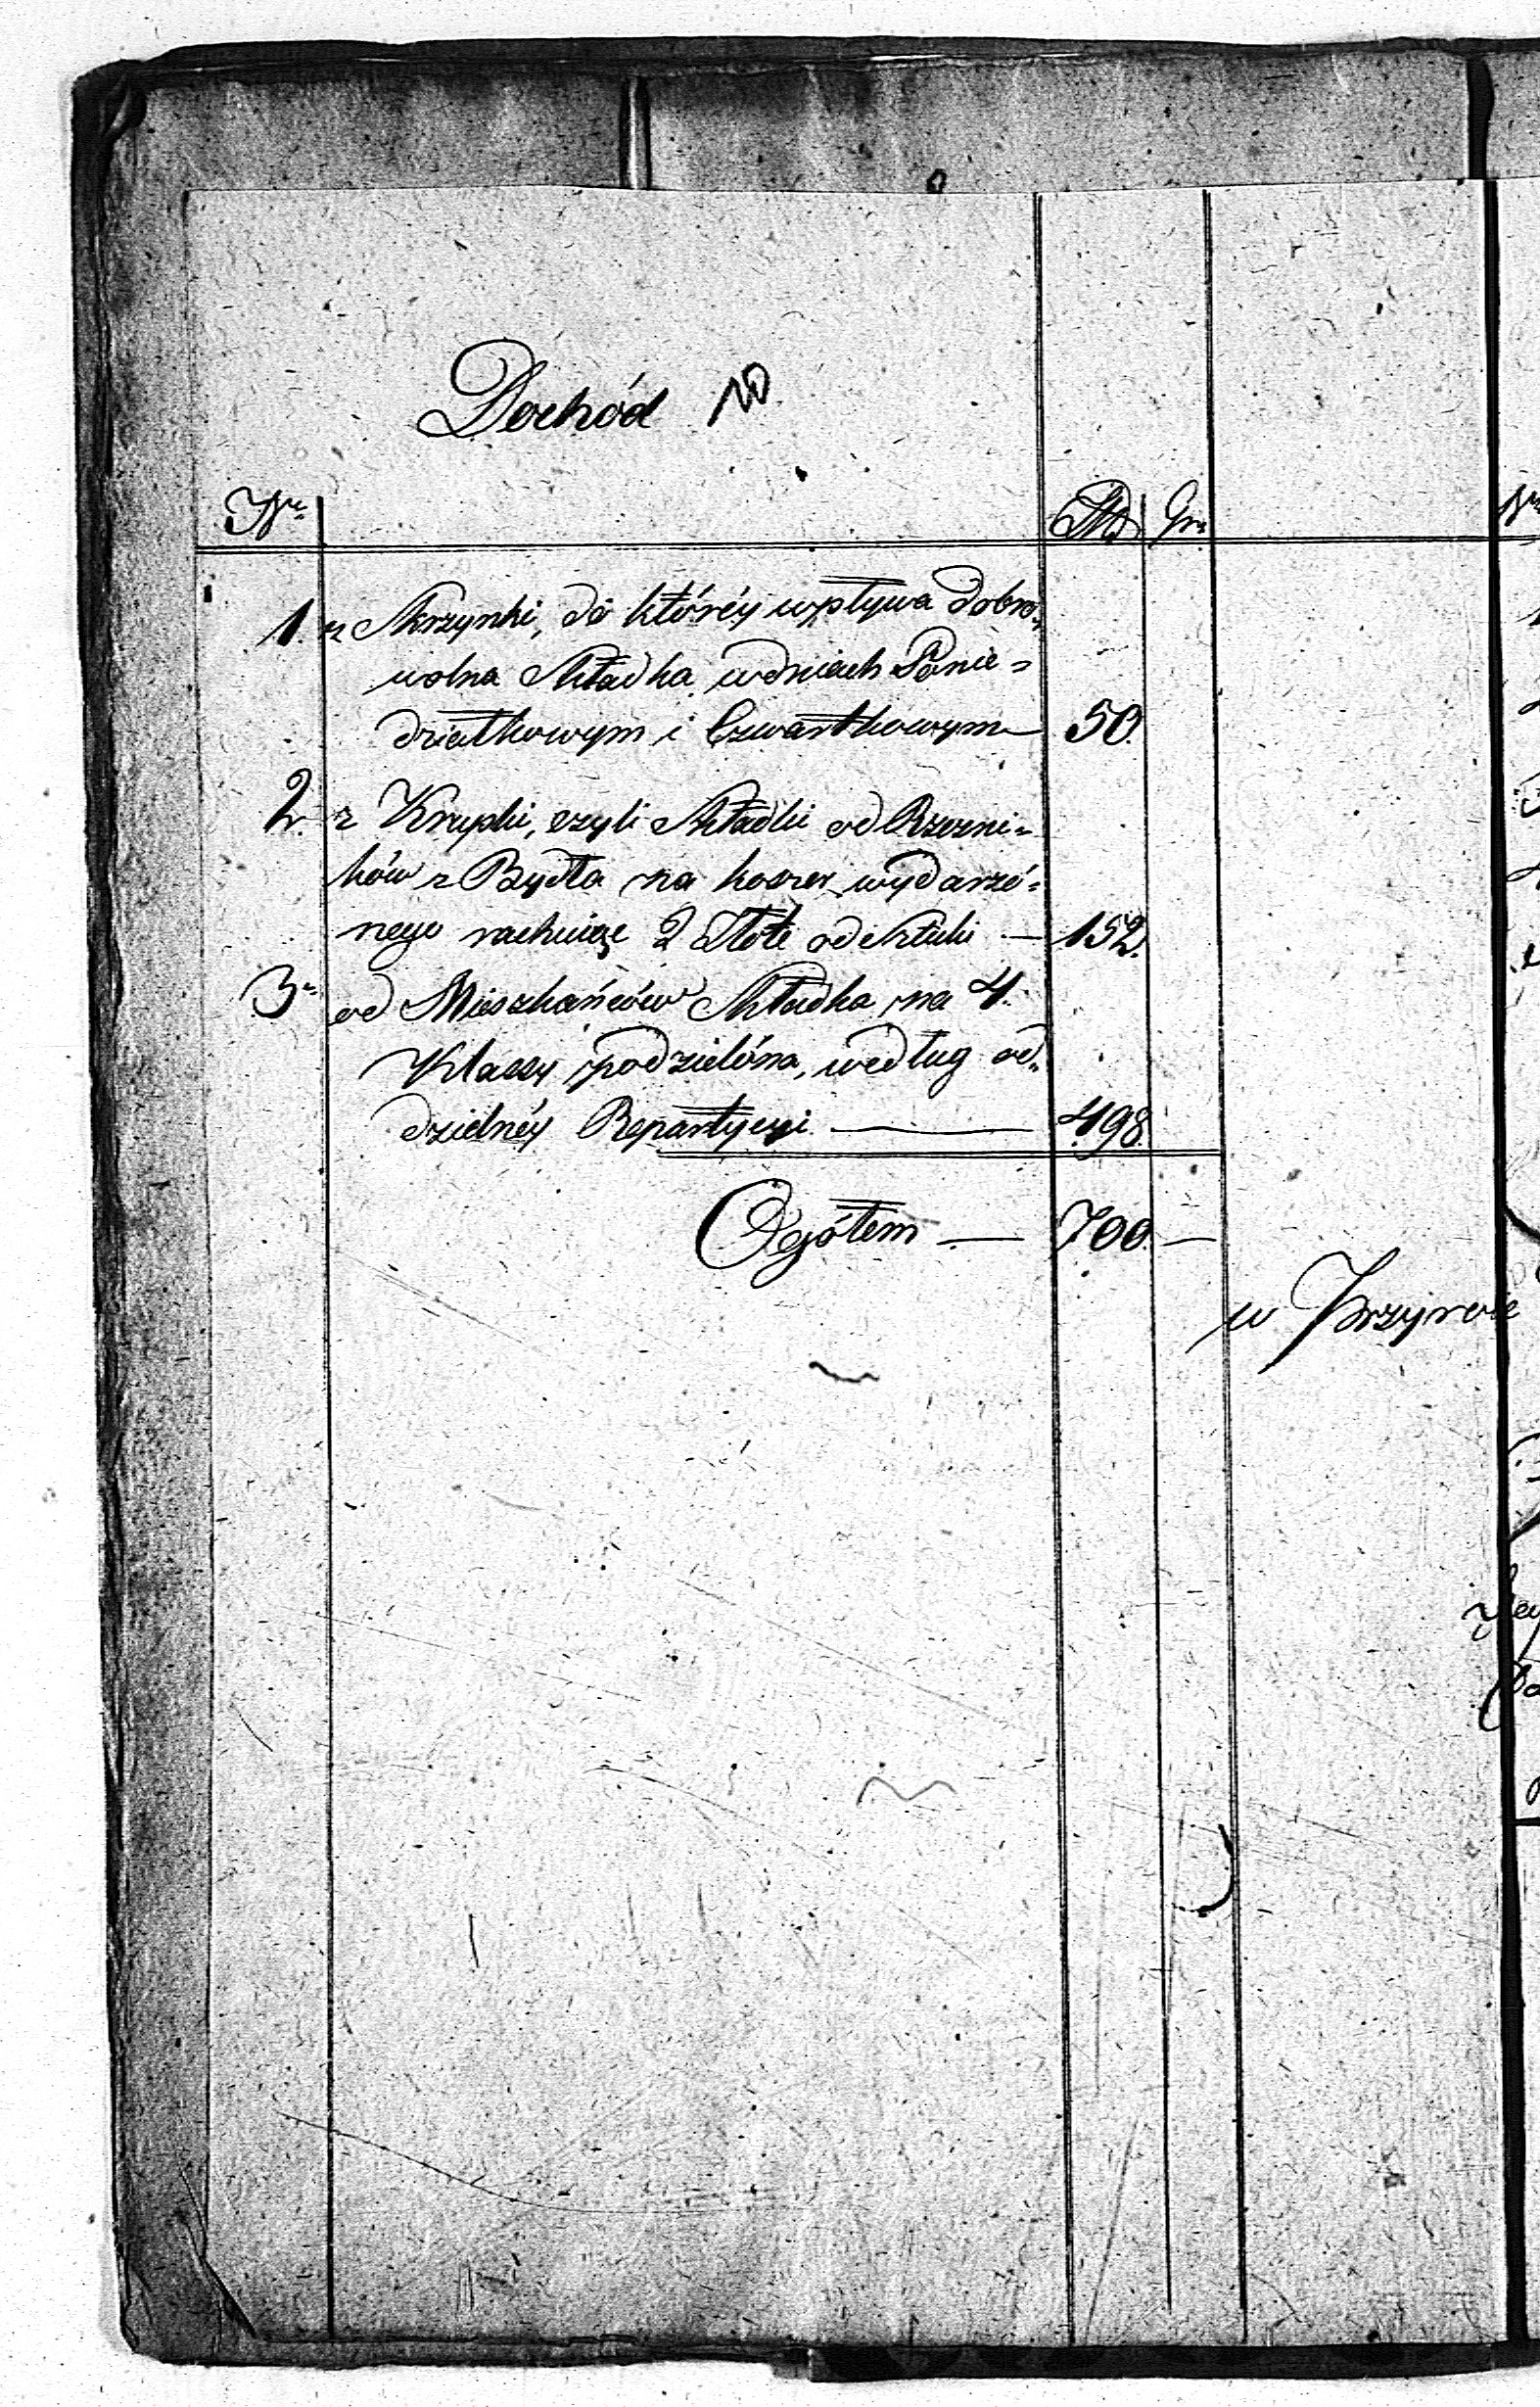 Dochód 10
Nr Złp Gr
1. z Skrzynki, do któréy wpływa dobro-
wolna Składka w dniach Ponie-
działkowym i Czwartkowym 50.
2. z Krupki, czyli Składki od Rzezni-
ków z Bydła na koszer wydarzó-
nego rachuiąc 2 Złote od sztuki — 152.
3. od Mieszkańców Składka na 4.
Klassy podzielóna, według od-
dzielnéy Repartycyi — 498
Ogółem — 700. —
w Przyrowie